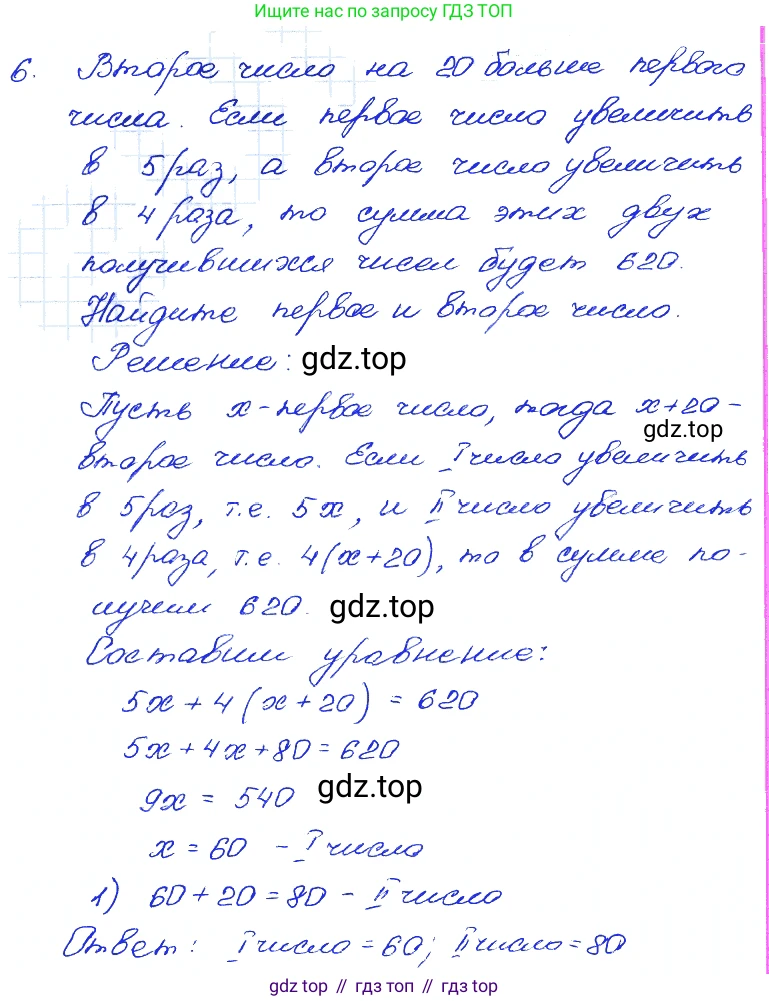 Ищите нас по запросу ГДЗ ТОП
6. Второе число на 20 больше первого
числа. Если первое число увеличить
в 5 раз, а второе число увеличить
в 4 раза, то сумма этих двух
получившихся чисел будет 620.
Найдите первое и второе число.
Решение: gdz.top
Пусть x - первое число, тогда x+20 -
gdz.top
второе число. Если I число увеличить
в 5 раз, т.е. 5x, и II число увеличить
в 4 раза, т.е. 4(x+20), то в сумме по-
лучим 620. gdz.top
Составим уравнение:
5x + 4(x+20) = 620
5x + 4x + 80 = 620
9x = 540 gdz.top
x = 60 - I число
1) 60 + 20 = 80 - II число
Ответ: I число = 60; II число = 80
gdz top // гдз топ // гдз top